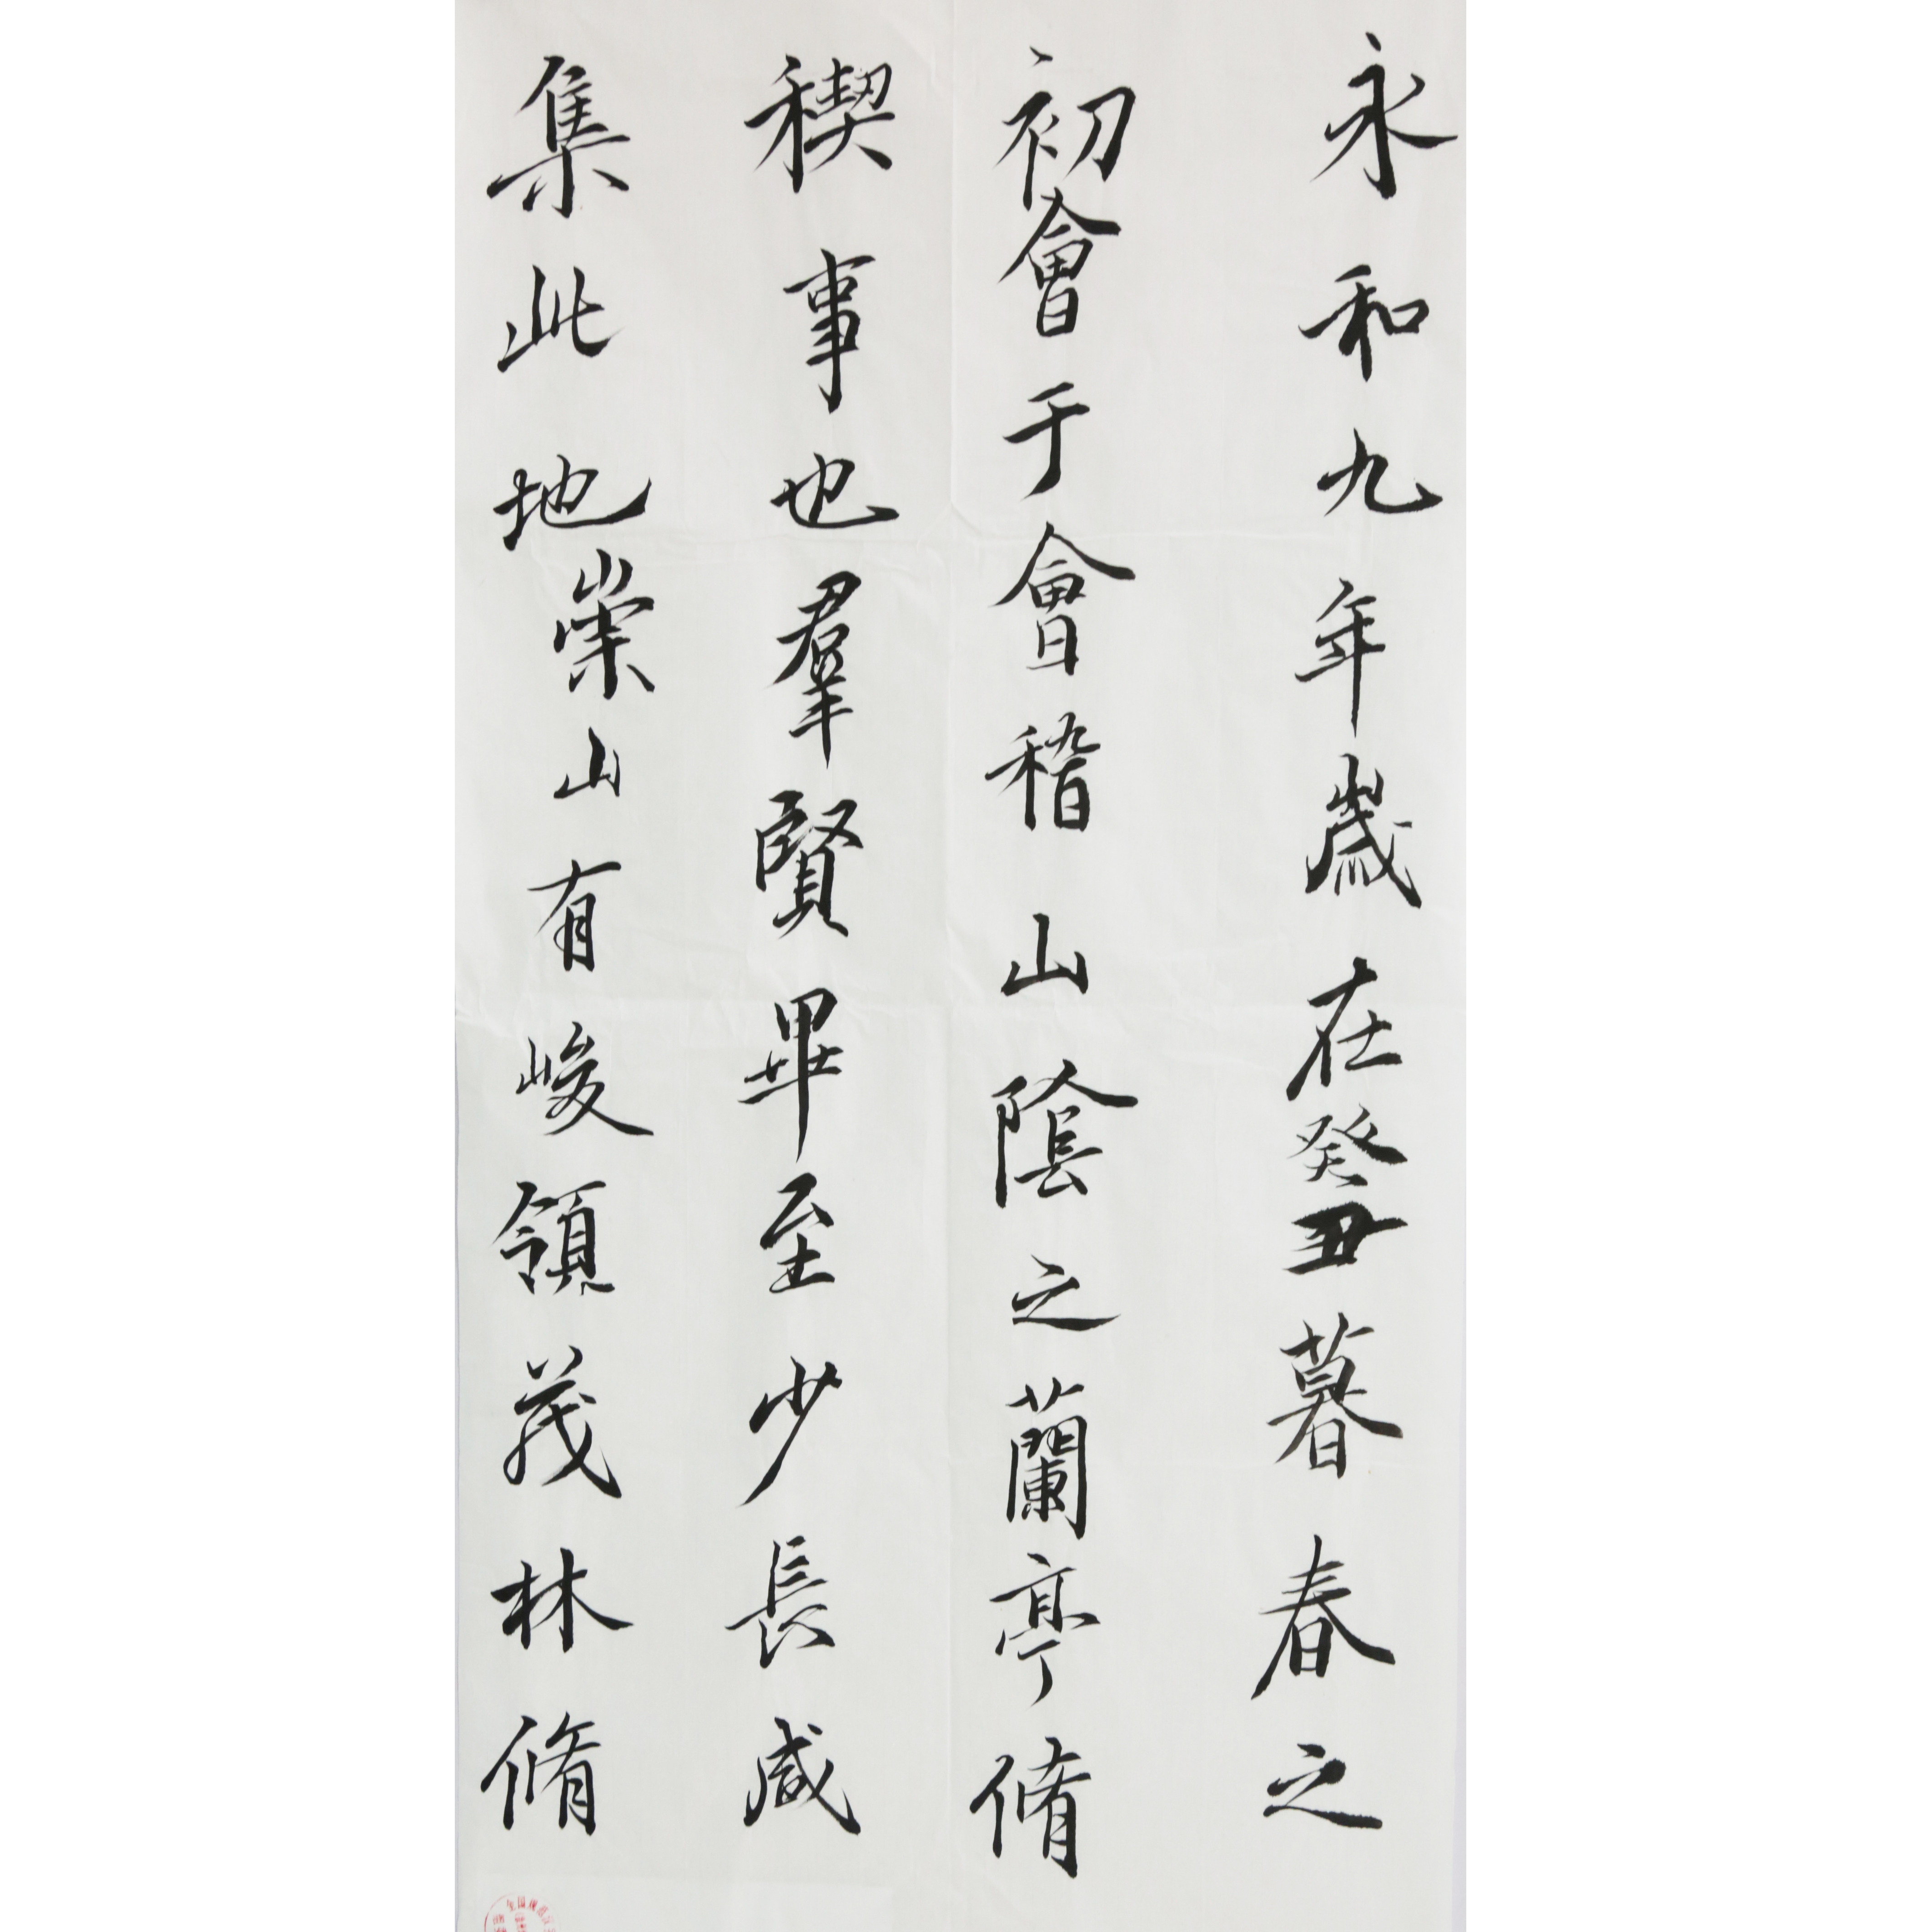 永和九年歲在癸丑暮春之
初會于會稽山陰之蘭亭脩
稧事也羣賢畢至少長咸
集此地崇山有峻領茂林脩